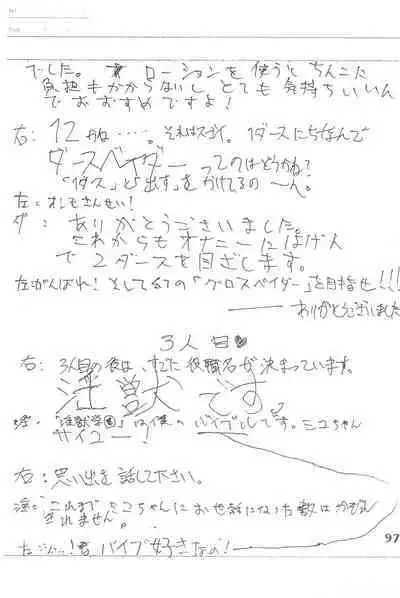 でした。 ローションを使うとちんこに
負担もかからないし、とても気持ちいいん
でおすすめですよ!
右: 12かね……。それはスゴイ。1ダースにちなんで
ダースベイダーってのはどうかね?
「ダス」と「出す」をかけてるの〜ん。
左:オレもさんせい!
ダ: ありがとうございました。
これからもオナニーにはげん
で2ダースを目ざします。
左がんばれ!そして全ての「グロスベイダー」を目指せ!!!
ありがとうございました
3人目
右: 3人目の彼は、すでに役職名が決まっています。
淫獣です。
淫:「淫獣学園」は僕のバイブルとしてです。ミユちゃん
サイコー!
右:思い出を話して下さい。
淫:これまでミユちゃんにお世話になった数は
きれません。
バイブ好きなの!
97